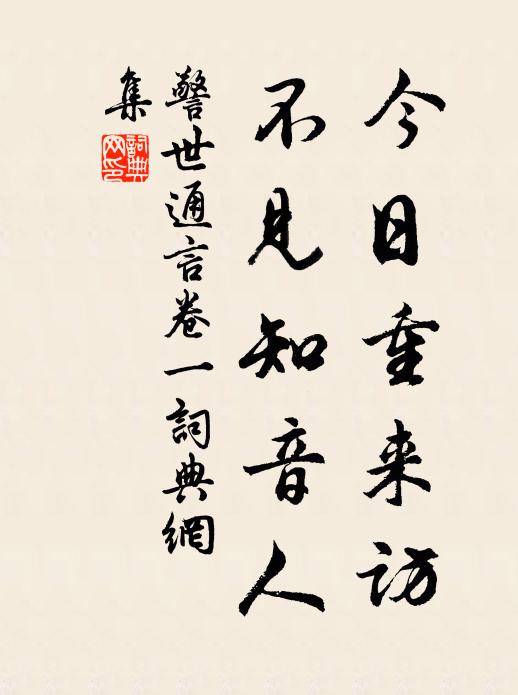 今日重来訪
不見知音人
警世通言卷一詞典網
集
詞典
网印